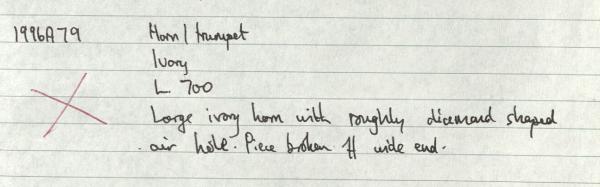 1996A79 Horn / trumpet
Ivory
L 700
Large ivory horn with roughly diamond shaped
air hole. Piece broken off wide end.